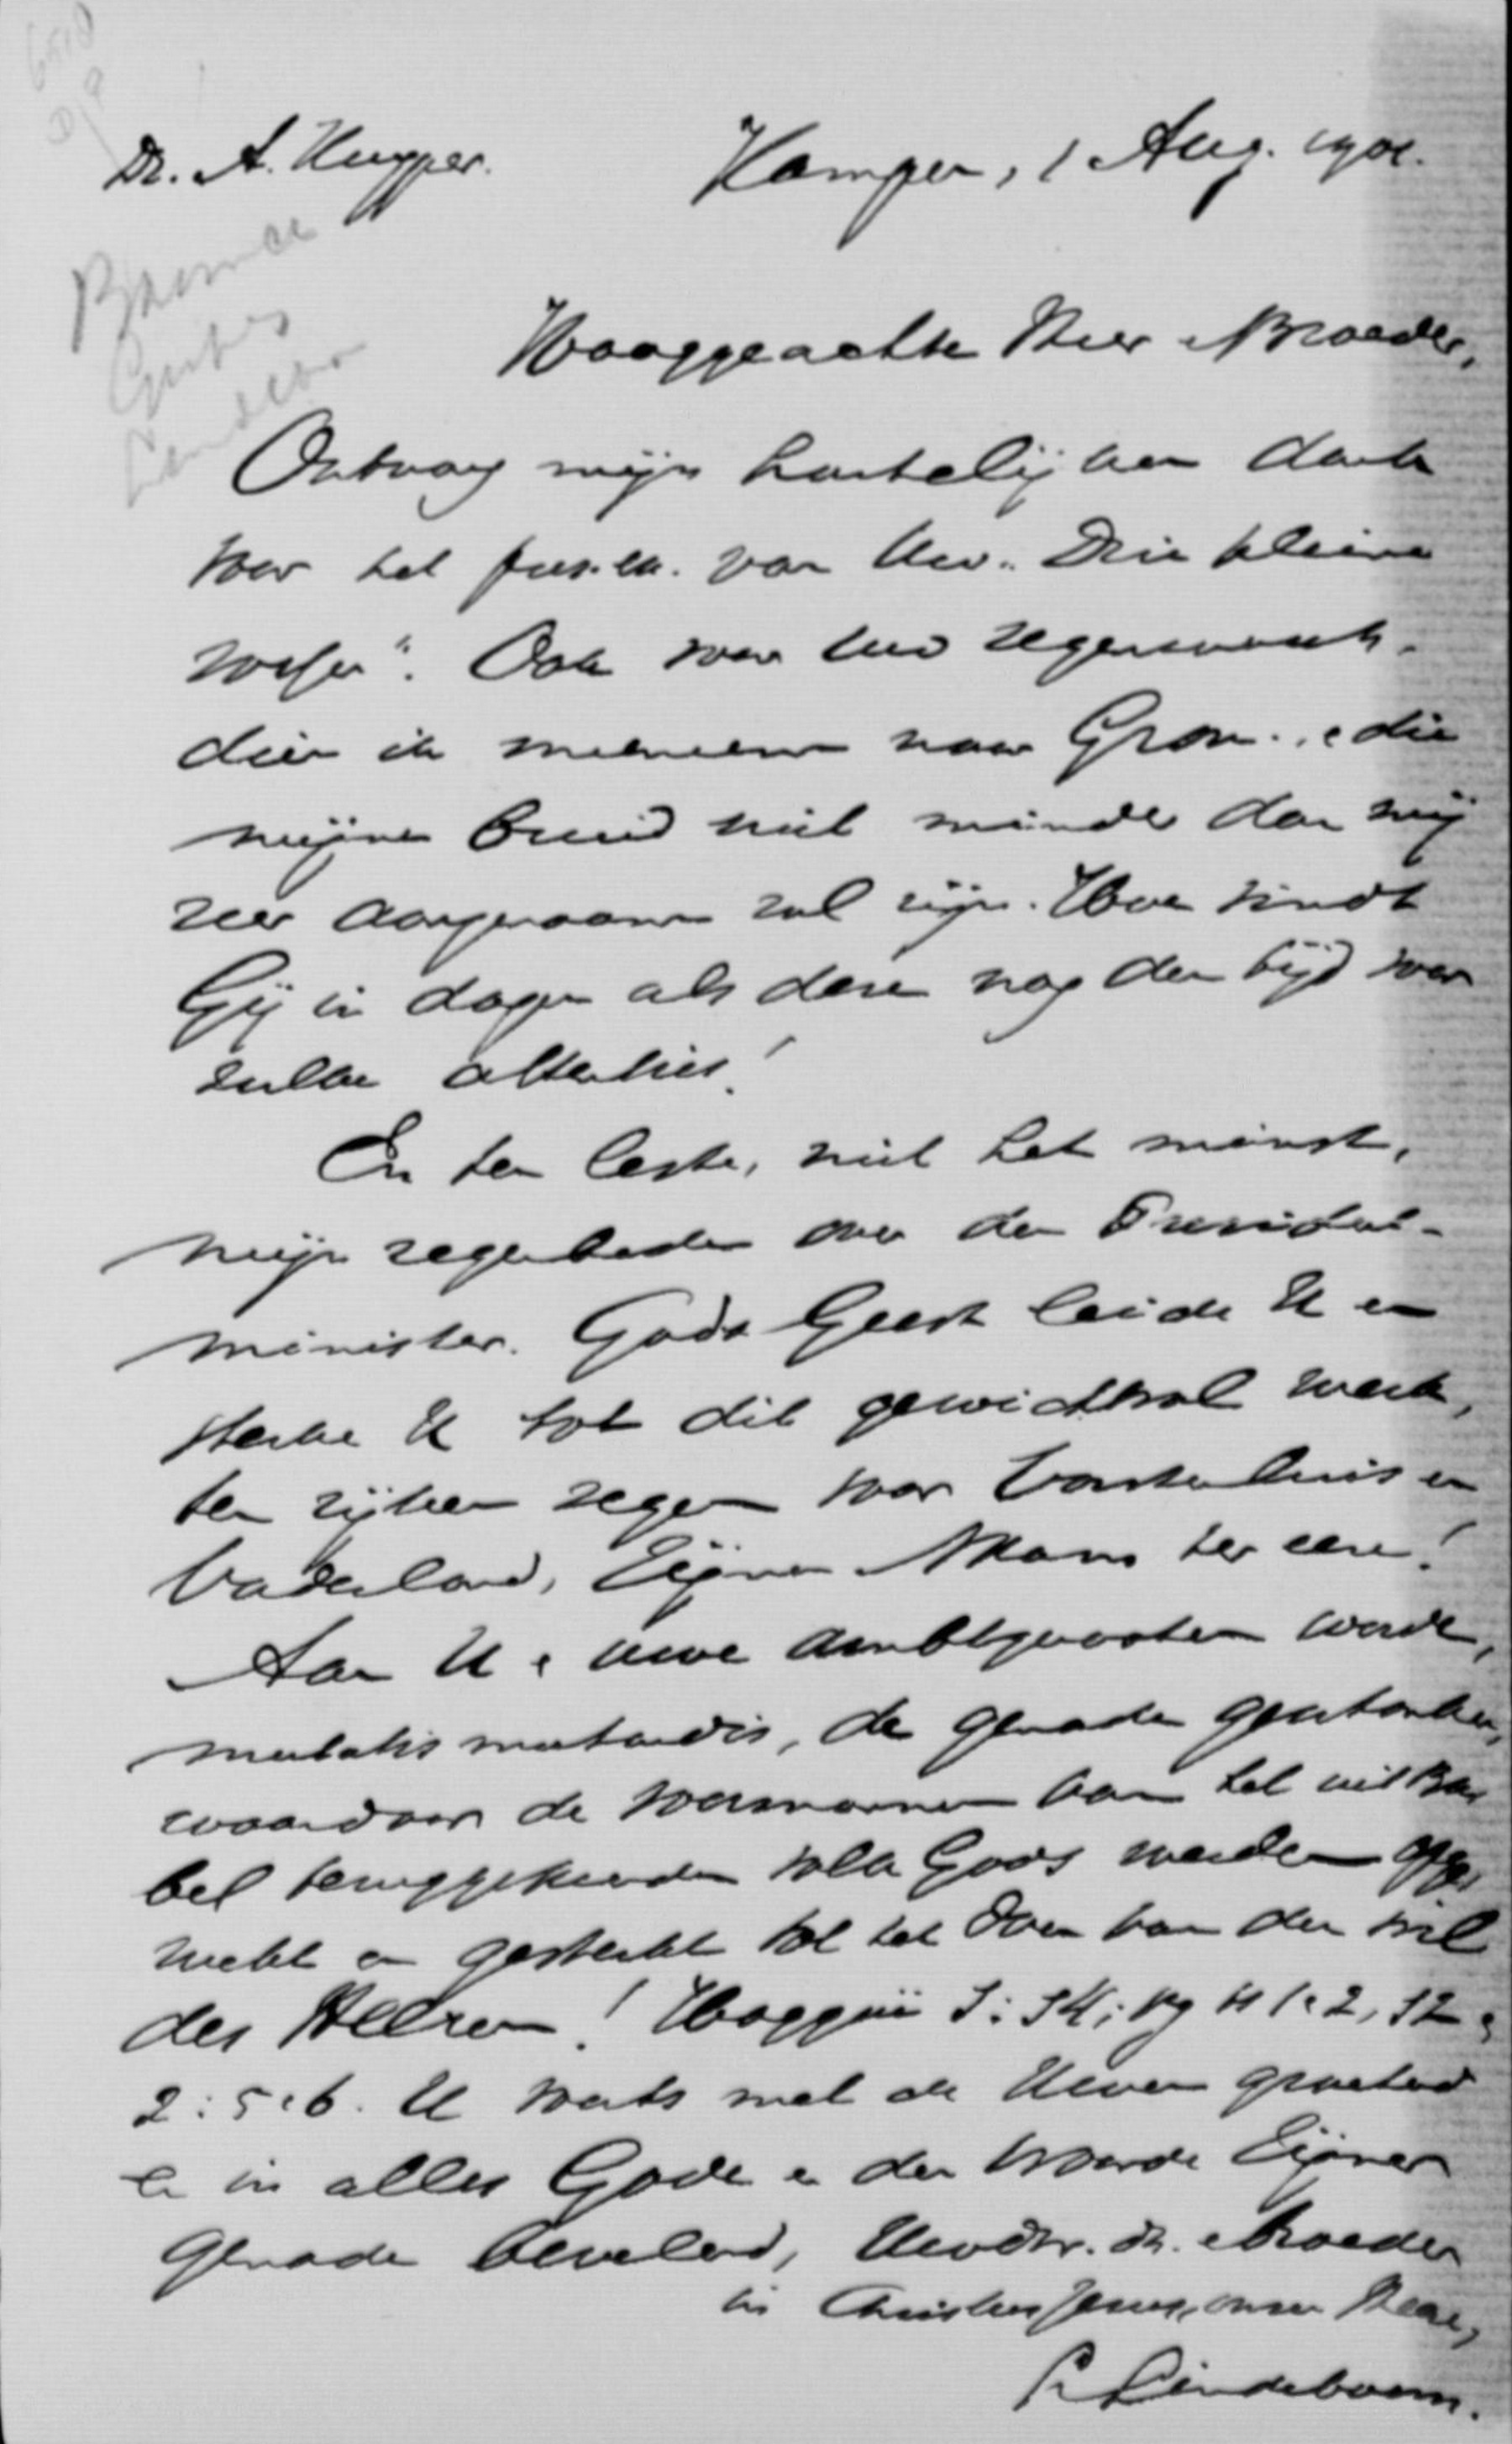 Dr. A. Kuyper.
Kampen, 1 Aug. 1901.
Hooggeachte Heer & Broeder,
Ontvang mijn hartelijken dank
voor het pres.ex. van Uw „Drie kleine
vossen". Ook voor Uw zegenwensch,
dien ik meeneem naar Gron. & die
mijne Bruid niet minder dan mij
zeer aangenaam zal zijn. Hoe vindt
Gij in dagen als deze nog den tijd voor
zulke attenties!
En ten leste, niet het minst,
mijn zegenbeden over den President-
minister. Gods Geest leide U en
sterke U tot dit gewichtvol werk,
ten rijken zegen voor Vorstenhuis en
Vaderland, Zijnen Naam ter eere!
Aan U & uwe ambtgenooten worde,
mutatis mutandis, de genade geschonken,
waardoor de voormannen van het uit Ba-
bel teruggekeerde volk Gods werden opge-
wekt en gesterkt tot het doen van den wil
des Heeren! Haggaï 1: 14; vg H 1 & 2, 12 &
2: 5 & 6. U voorts met de Uwen groetend
en in alles Gode & den Woorde Zijner
genade bevelend, Uwdw. dr. & Broeder
in Christus Jezus, onzen Heere,
L Lindeboom.